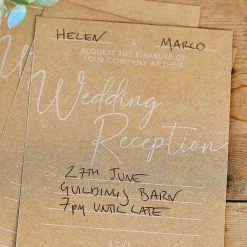 HELEN & MARCO
REQUEST THE PLEASURE OF
YOUR COMPANY AT THEIR
Wedding
Reception
ON 27TH JUNE
AT GUILDINGS BARN
7PM UNTIL LATE
RSVP